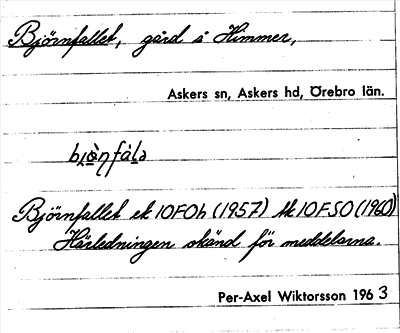 Björnfallet, gård i Himmer,
Askers sn, Askers hd, Örebro län.
Björnfallet ek 10FOh (1957) tk 10FSO (1960)
Härledningen okänd för meddelarna.
Per-Axel Wiktorsson 1963